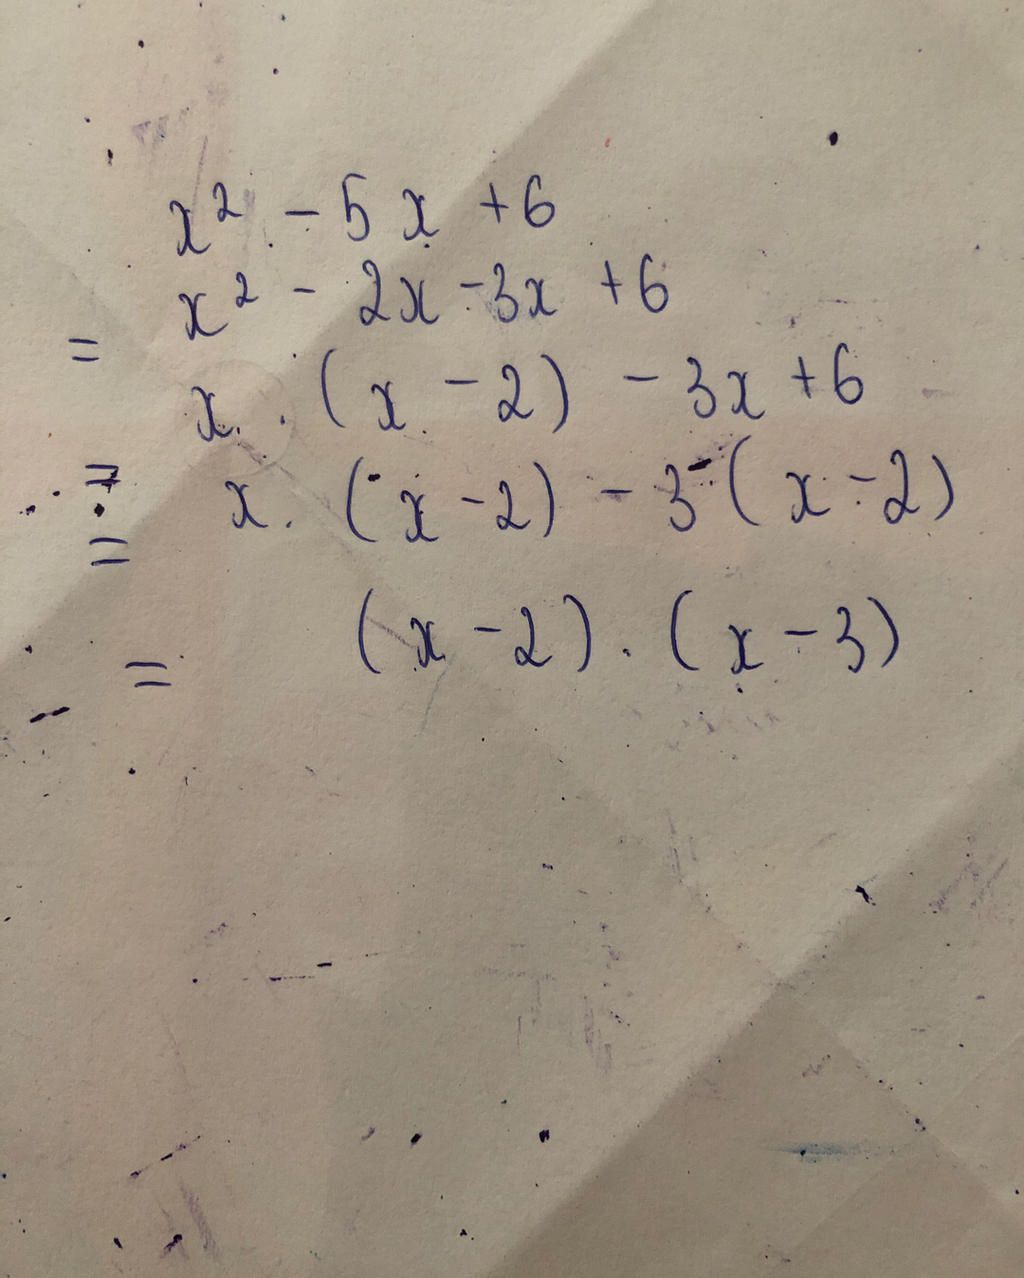 x² - 5x + 6
= x² - 2x - 3x + 6
= x · (x - 2) - 3x + 6
= x · (x - 2) - 3 (x - 2)
= (x - 2) · (x - 3)